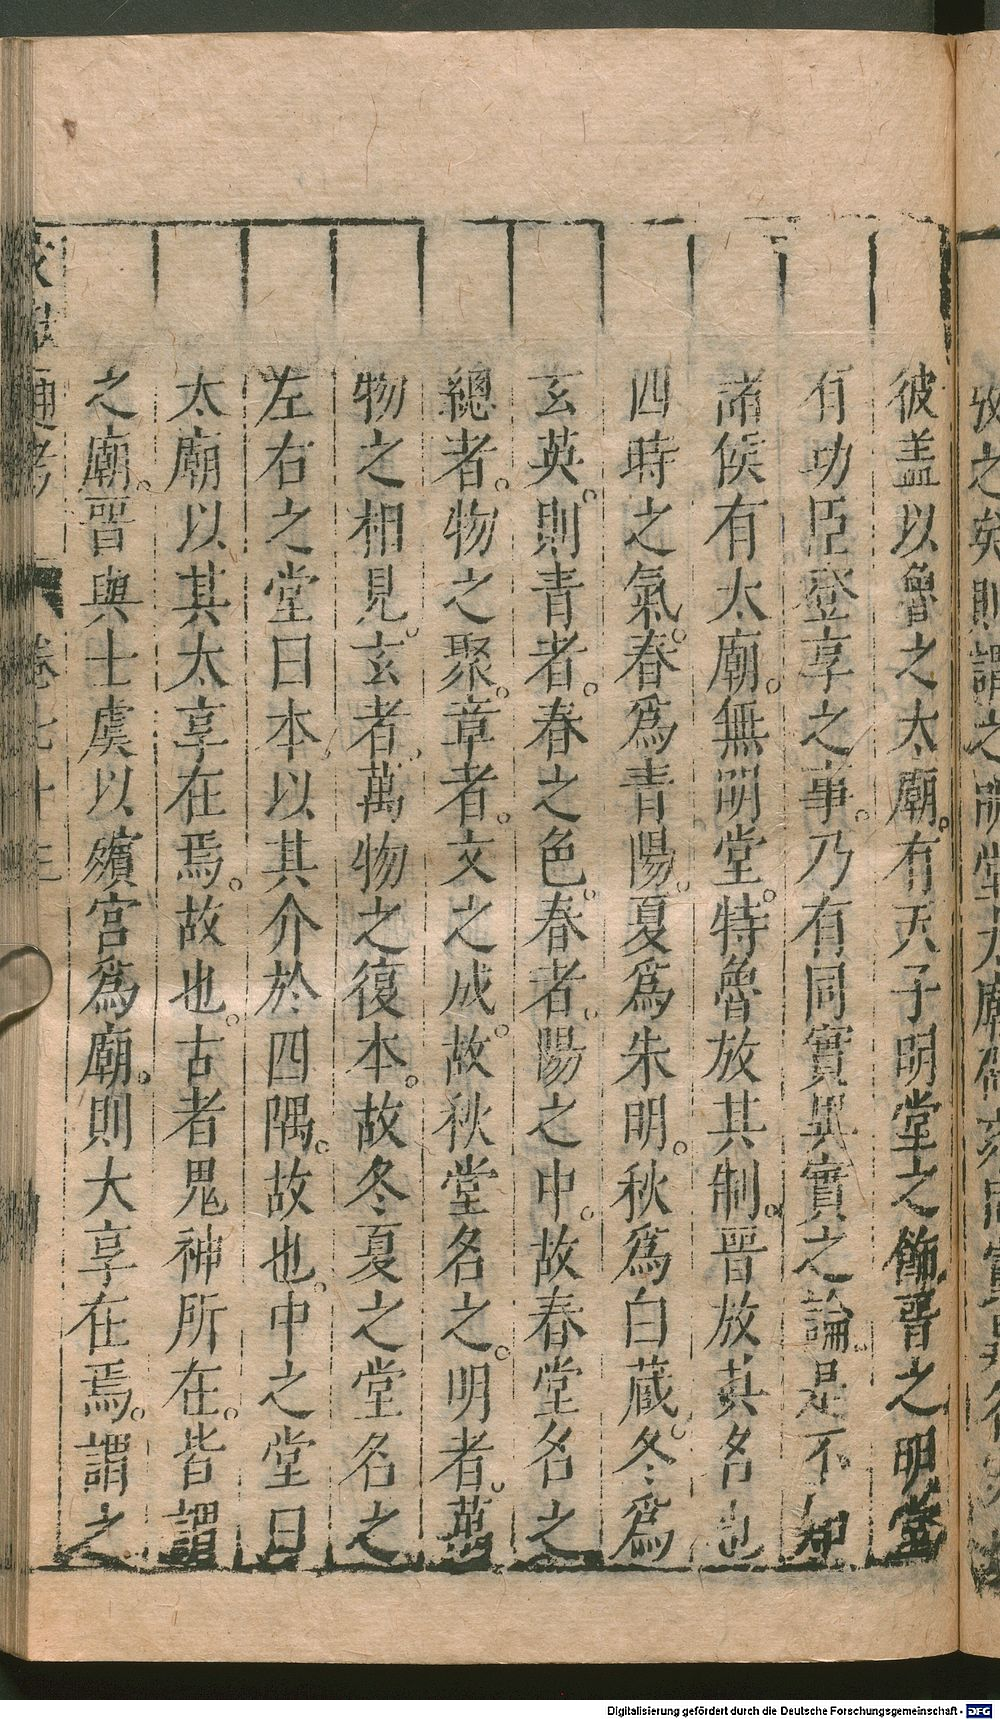 彼盖以魯之太廟。有天子明堂之飾。晉之明堂
有功臣登享之事。乃有同實異實之論。是不知
諸侯有太廟。無明堂。特魯放其制。晉放其名也
四時之氣。春爲青陽。夏爲朱明。秋爲白蔵。冬爲
玄英。則青者。春之色。春者。陽之中。故春堂名之
總者。物之聚。章者。文之成。故秋堂名之。明者。萬
物之相見。玄者。萬物之復本。故冬夏之堂名之
左右之堂曰本以其介於四隅。故也。中之堂曰
太廟以其太享在焉。故也。古者鬼神所在。皆謂
之廟。晉與士虞以殯宮爲廟。則大享在焉。謂之
通考 卷七十三
Digitalisierung gefördert durch die Deutsche Forschungsgemeinschaft - DFG